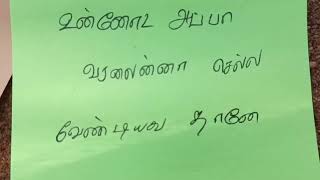 உன்னோட அப்பா
வரலைன்னா செல்ல
வேண்டியவ தானே